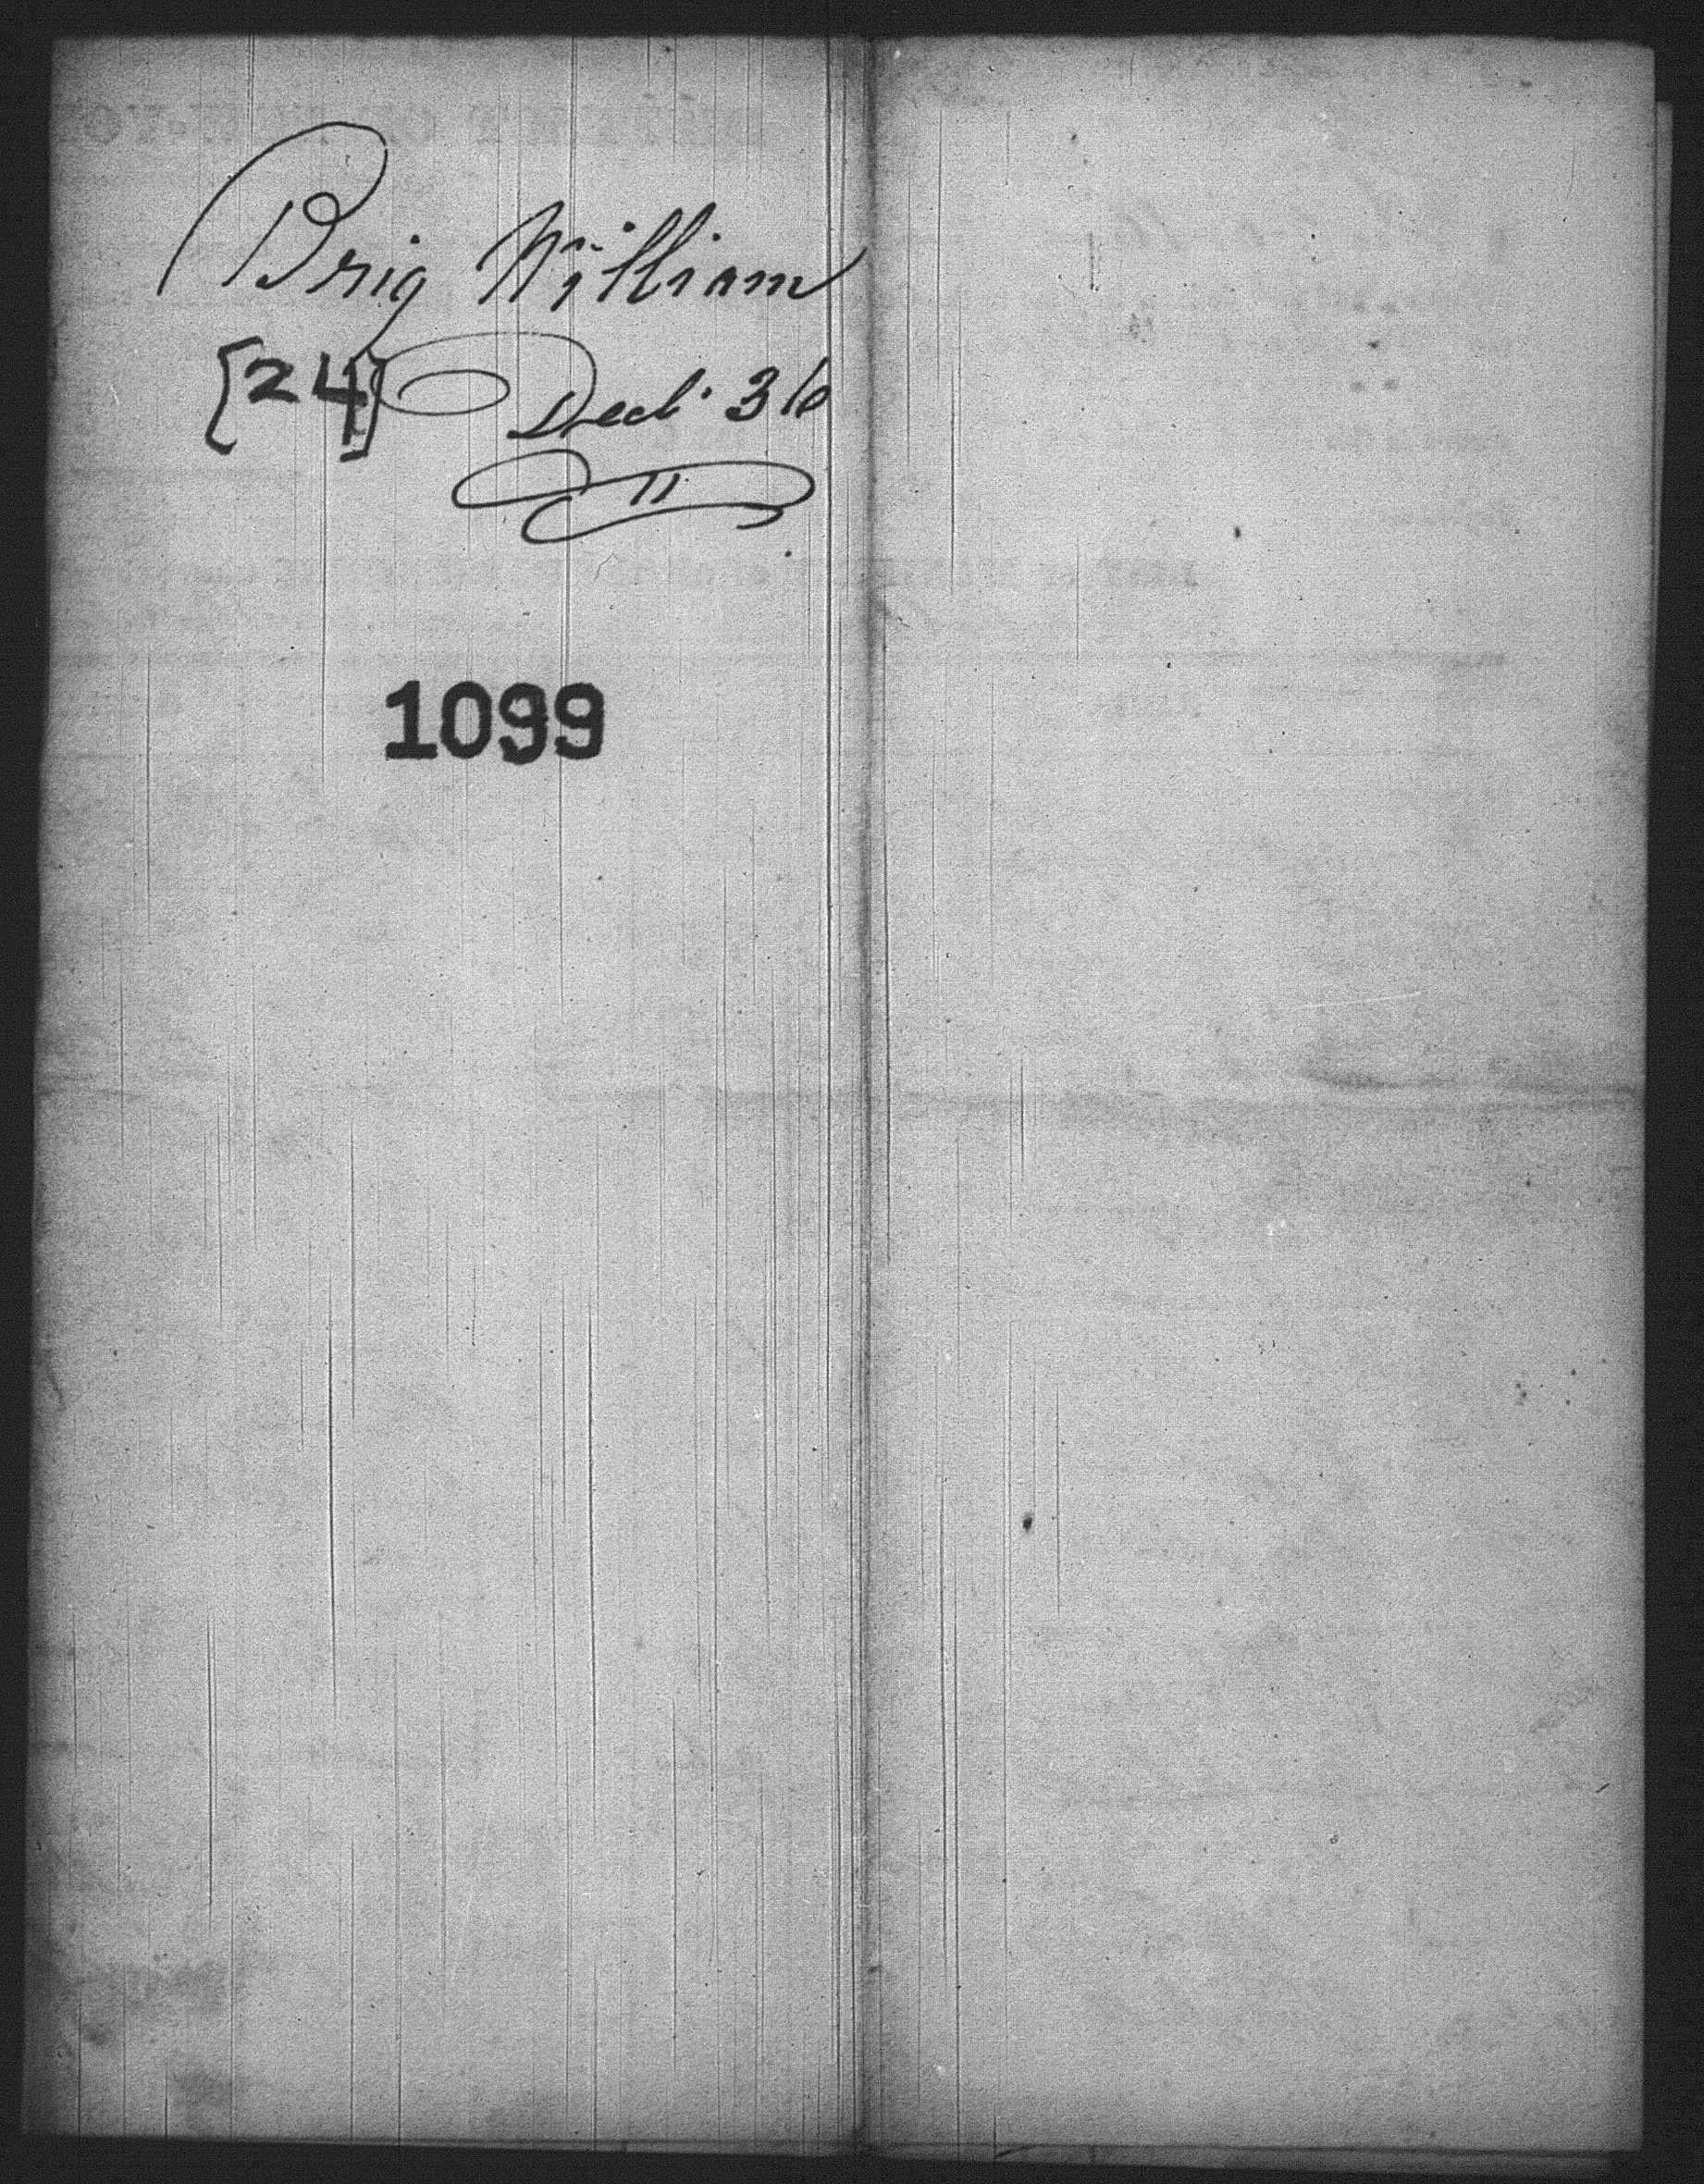 Brig William
[24] Decb. 3/6
11
1099